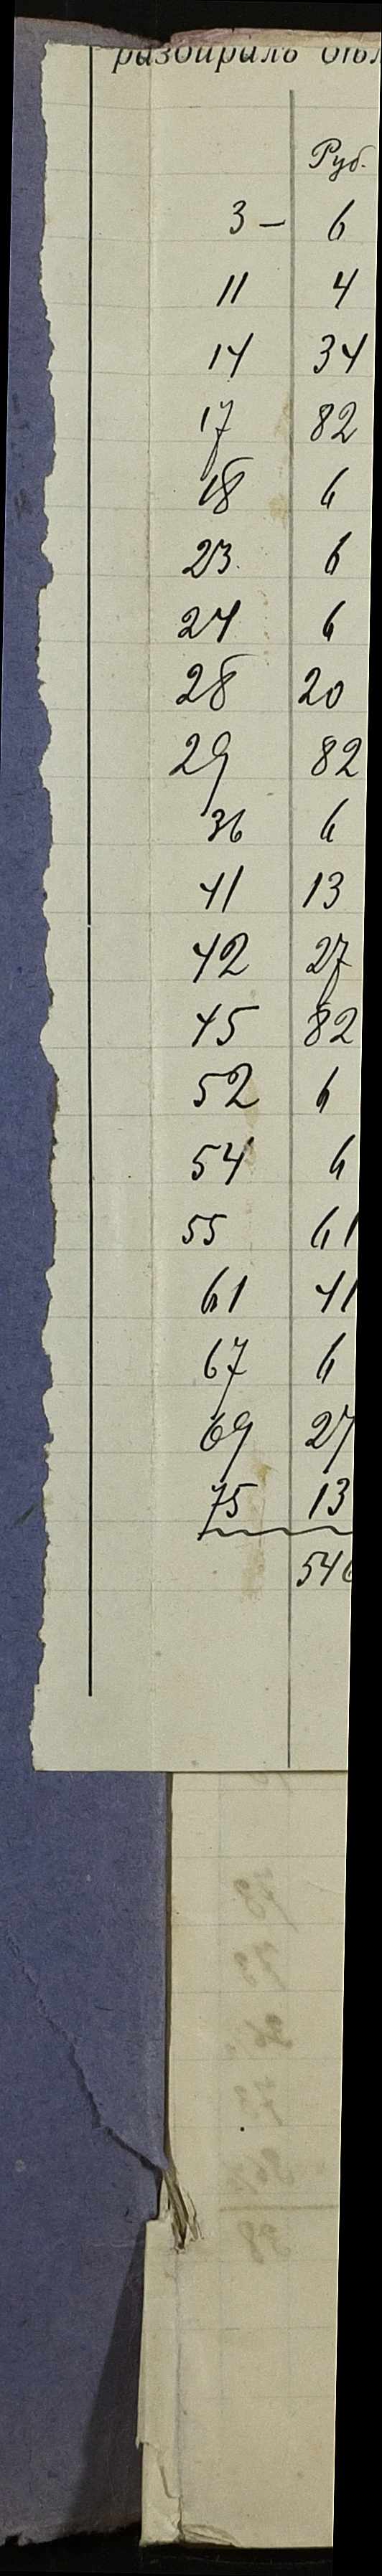 разбиралъ
Руб.
3 — 6
11 4
14 34
17 82
18 6
23 6
24 6
28 20
29 82
36 6
41 13
42 27
45 82
52 6
54 6
55 61
61 41
67 6
69 27
75 13
546